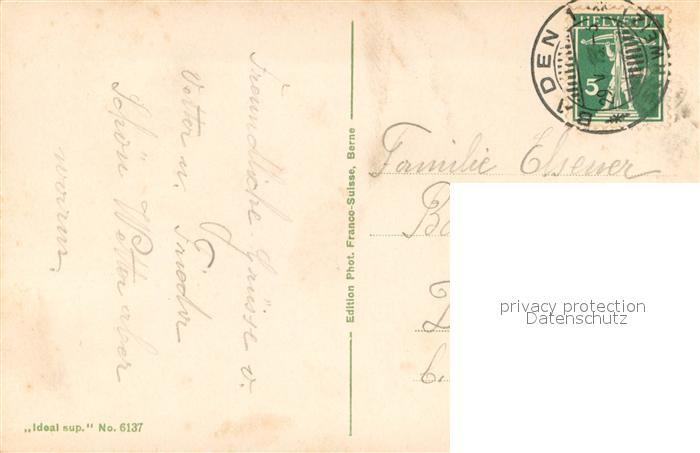 Freundliche Grüsse v.
Vetter u.
Frieda
Schön Wetter aber
warm.
„Ideal sup." No. 6137
Edition Phot. Franco-Suisse, Berne
BADEN 1
HELVETIA
5
Familie Elsener
B
6.
privacy protection
Datenschutz